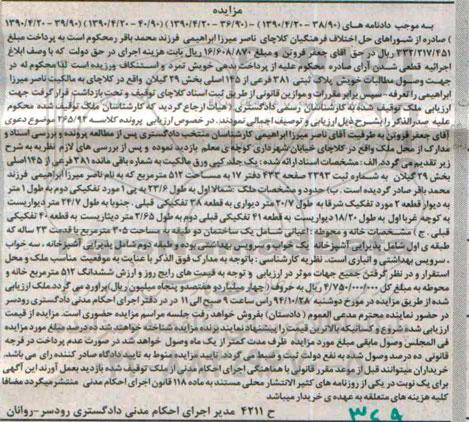 مزایده
به موجب دادنامه های (۳۸/۹۰ - ۱۳۹۰/۴/۲۰) - (۳۶/۹۰ - ۱۳۹۰/۴/۲۰) - (۴۰/۹۰ - ۱۳۹۰/۴/۲۰) (۳۹/۹۰ - ۱۳۹۰/۴/۲۰
) صادره از شوراهای حل اختلاف فرهنگیان کلاچای ناصر میرزا ابراهیمی فرزند محمد باقر محکوم است به پرداخت مبلغ
۳۳۲/۲۱۷/۴۵۱ ریال در حق آقای جعفر فروتن و مبلغ ۱۶/۶۰۸/۸۷۰ ریال بابت هزینه اجرای در حق دولت که با وصف ابلاغ
اجرائیه قطعی شدن آرای صادره محکوم علیه از پرداخت بدهی خویش تمرد و استنکاف ورزیده است لذا محکوم له در
جهت وصول مطالبات خویش پلاک ثبتی ۳۸۱ فرعی از ۱۴۵ اصلی بخش ۲۹ گیلان واقع در کلاچای به مالکیت ناصر میرزا
ابراهیمی را تعرفه برابر مقررات و موازین قانونی از طریق ثبت اسناد کلاچای توقیف و تحت بازداشت قرار گرفت جهت
ارزیابی ملک توقیف شده به کارشناسان رسمی دادگستری ارجاع گردید که کارشناسان ملک توقیف شده محکوم
علیه صدرالذکر را بشرح ذیل ارزیابی و توصیف اجمالی نمودند. در خصوص ارزیابی پرونده کلاسه ۲۶۵/۹۳ موضوع دعوی
آقای جعفر فروتن به طرفیت آقای ناصر میرزا ابراهیمی کارشناسان منتخب دادگستری پس از مطالعه پرونده و بررسی اسناد و
مدارک از محل ملک واقع در کلاچای خیابان شهرداری کوچه ی معلم بازدید نموده و پس از بررسی های لازم نظریه به شرح
زیر تقدیم می گردد. الف: مشخصات اسناد ارائه شده: یک جلد کپی ورق مالکیت به شماره باقی مانده ۳۸۱ فرعی از ۱۴۵ اصلی
بخش ۲۹ گیلان به شماره ثبت ۲۳۹۳ صفحه ۴۳۳ دفتر ۱۷ به مساحت ۵۱۲ مترمربع که به نام ناصر میرزا ابراهیمی فرزند
محمد باقر صادر گردیده است. ب) حدود و مشخصات ملک: شمالا اول به طول ۲۳/۶ به پی ۱ مورد تفکیکی دوم به طول ۱ متر
به دیوار قطعه ۲ مورد تفکیک شرقا به طول ۲۰/۷ متر دیواری به قطعه ۳۸ تفکیکی قبلی جنوبا به طول ۲۴/۷ متر دیواریست
به کوچه غربا اول به طول ۱۸/۲۰ دیواریست به قطعه ۴۱ تفکیکی قبلی دوم به طول ۲/۶۵ متر دیواریست به قطعه ۴۰ تفکیکی
قبلی. ج) مشخصات خانه و محوطه: اعیانی شامل یک ساختمان دو طبقه به مساحت ۳۰۵ مترمربع با قدمت ۲۳ ساله که
طبقه ی اول شامل پذیرایی آشپزخانه، یک خواب و سرویس بهداشتی بوده و طبقه دوم شامل پذیرایی آشپزخانه، سه خواب
، سرویس بهداشتی و انباری است. نظریه کارشناسی: با توجه به مدارک فوق الذکر با عنایت به موقعیت مناسب ملک و محل
استقرار و در نظر گرفتن جمیع جهات موثر در ارزیابی و توجه به قیمت های رایج روز و ارزش ششدانگ ۵۱۲ مترمربع خانه و
محوطه به مبلغ کل ۴/۷۵۰/۰۰۰/۰۰۰ ریال به حروف (چهار میلیارد و هفتصد و پنجاه میلیون ریال) برآورد می گردد. ملک ارزیابی
شده از طریق مزایده در مورخ دوشنبه ۹۴/۱۰/۲۸ راس ساعت ۹ صبح الی ۱۱ در در دفتر اجرای احکام مدنی دادگستری رودسر
در حضور نماینده محترم مدعی العموم (دادستان) بفروش خواهد رفت جلسه مراسم مزایده حضوری است. مزایده از قیمت
ارزیابی شده شروع و کسانیکه بالاترین قیمت را پیشنهاد نمایند برنده مزایده شناخته خواهند شد. ده درصد مبلغ مورد مزایده
فی المجلس وصول مابقی مبلغ مورد مزایده ظرف مدت کمتر از یک ماه وصول خواهد شد. در صورت عدم پرداخت در فرجه
قانونی ده درصد وصول شده به نفع دولت ثبت و ضبط می گردد تایید مزایده منوط به تایید دادگاه صادر کننده رای می باشد.
خریداران میتوانند قبل از موعد مقرر قانونی با هماهنگی اجرای احکام مدنی از ملک توقیف شده بازدید بعمل آورند این آگهی
برای یک نوبت در یکی از روزنامه های کثیر الانتشار محلی مستند به ماده ۱۱۸ قانون اجرای احکام مدنی منتشر میگردد مضافا
کلیه هزینه های متعلقه به عهده ی خریدار میباشد
ح ۴۲۱۱ مدیر اجرای احکام مدنی دادگستری رودسر-روانان
۳۶۹